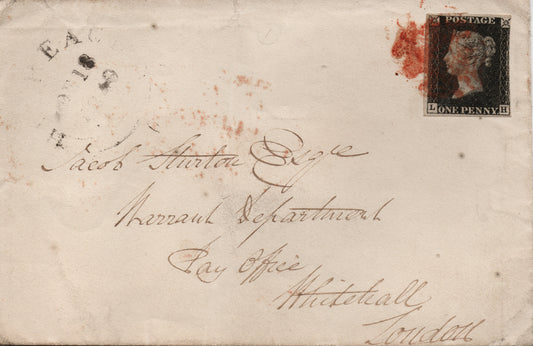 POSTAGE
L H
ONE PENNY
Jacob Sturton Esqre
Warrant Department
Pay Office
Whitehall
London